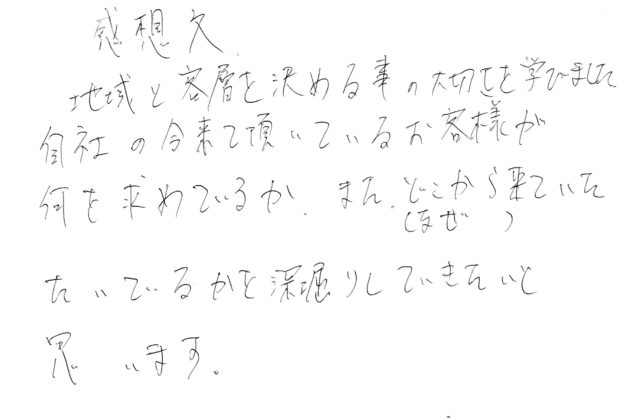 感想文
地域と客層を決める事の大切さを学びました
自社の今来て頂いているお客様が
何を求めているか、また、どこから来ていた
(なぜ)
たいているかを深堀りしていきたいと
思います。